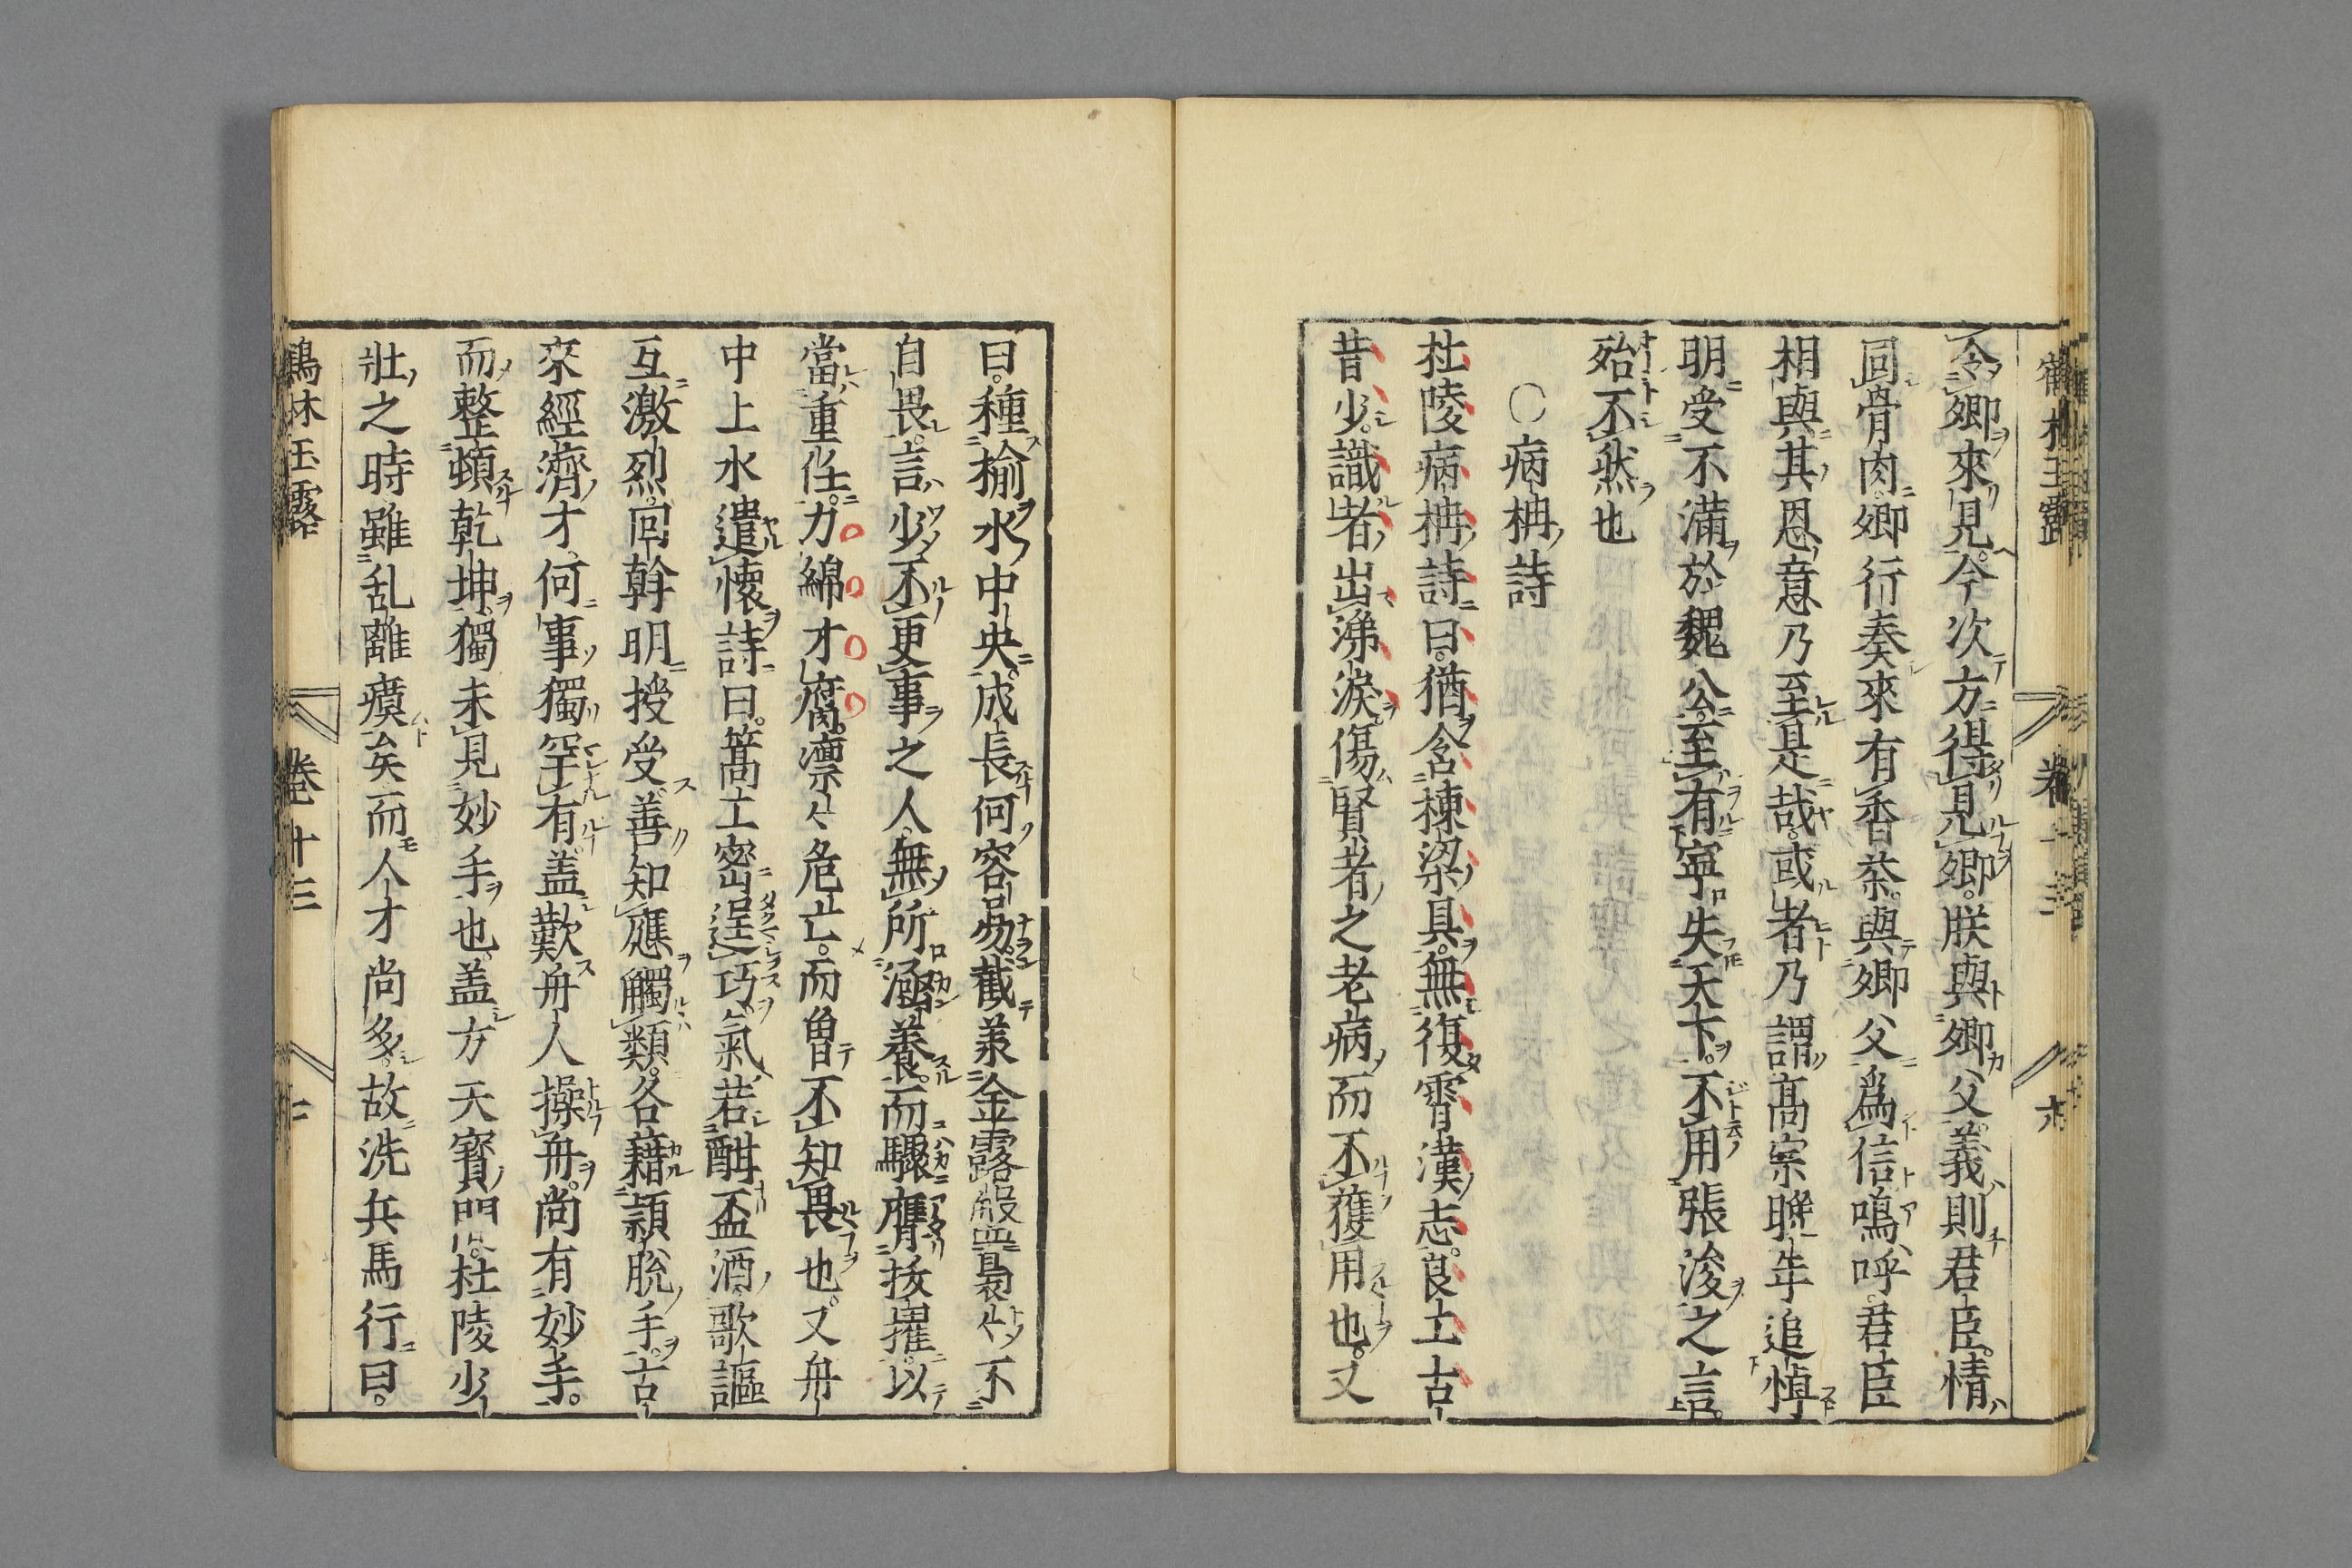 令卿來見。今次方得見卿。朕與卿父。義則君臣。情
同骨肉。卿行奏來有香茶。與卿父爲信。嗚呼。君臣
相與其恩意乃至是哉。或者乃謂高宗晚年追悼
明受不滿於魏公。至有寧失天下。不用張浚之言。
殆不然也
〇病柟詩
杜陵病柟詩曰。猶含棟梁具。無復霄漢志。良士古
昔少。識者出涕淚。傷賢者之老病而不獲用也。又
曰。種榆水中央。成長何容易。截承金露盤。裊々不
自畏。言少不更事之人。無所涵養。而驟膺拔擢。以
當重任。力綿才腐。凛々危亡。而曽不知畏也。又舟
中上水遣懷詩曰。篙工密逞巧。氣若酣盃酒。歌謳
互激烈。回斡明授受。善知應觸類。各藉頴脫手。古
來經濟才。何事獨罕有。盖歎舟人操舟。尚有妙手。
而整頓乾坤。獨未見妙手也。盖方天寳門。杜陵少
壯之時。雖乱離瘼矣。而人才尚多。故洗兵馬行曰。
鶴林玉露 卷十三